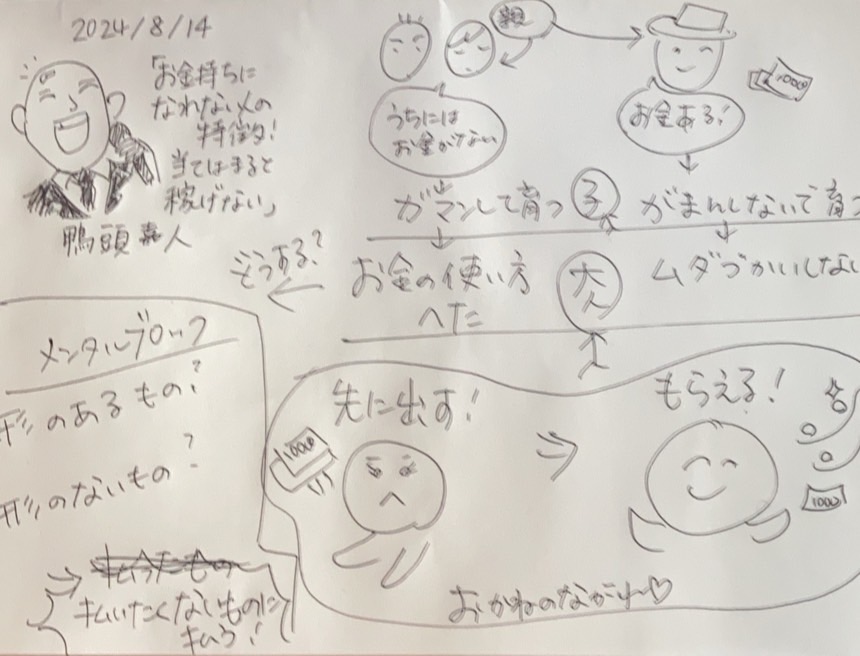 2024/8/14
「お金持ちに
なれない人の
特徴!
当てはまると
稼げない」
鴨頭嘉人
親
うちには
お金がない
お金ある!
1000
ガマンして育つ
子
がまんしないで育つ
どうする?
お金の使い方
へた
大人
ムダづかいしない
メンタルブロック
形のあるもの?
形のないもの?
払いたくないものに
払う!
先に出す!
1000
もらえる!
1000
おかねのながれ〜♡